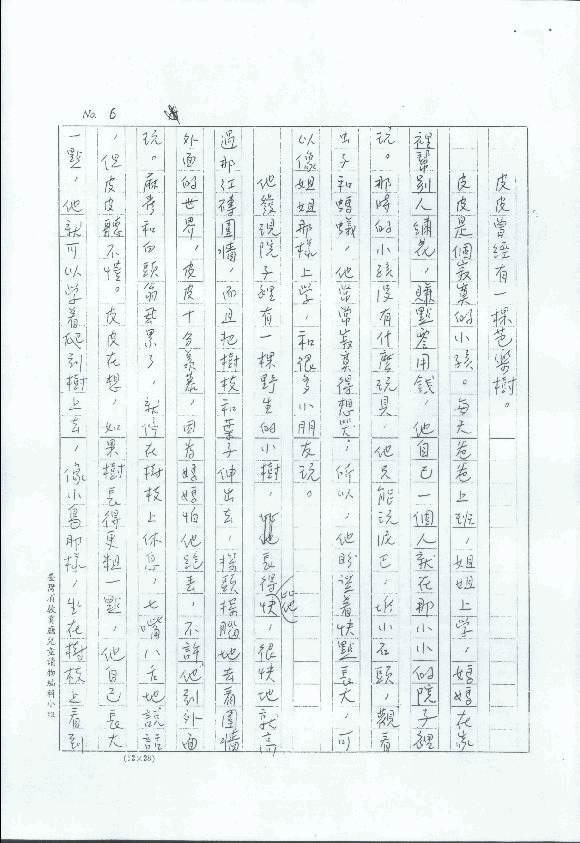 No. 6
皮皮曾經有一棵芭樂樹。
皮皮是個寂寞的小孩。每天爸爸上班，姐姐上學，媽媽在家
裡幫別人繡花，賺點零用錢，他自己一個人就在那小小的院子裡
玩。那時的小孩沒有什麼玩具，他只能玩泥巴，堆小石頭，觀看
虫子和螞蟻，他常常寂寞得想哭，所以，他盼望着快點長大，可
以像姐姐那樣上学，和很多小朋友玩。
他發現院子裡有一棵野生的小樹，它長得快，很快地就高
過那紅磚圍牆，而且把樹枝和葉子伸出去，探頭探腦地去看圍牆
外面的世界，皮皮十分羨慕，因為媽媽怕他跑丟，不許他到外面
玩。麻雀和白頭翁飛累了，就停在樹枝上休息，七嘴八舌地說話
，但皮皮聽不懂。皮皮在想，如果樹長得更粗一點，他自己長大
一點，他就可以学着爬到樹上去，像小鳥那樣，坐在樹枝上看到
臺灣省教育廳兒童讀物編輯小組
(12×25)